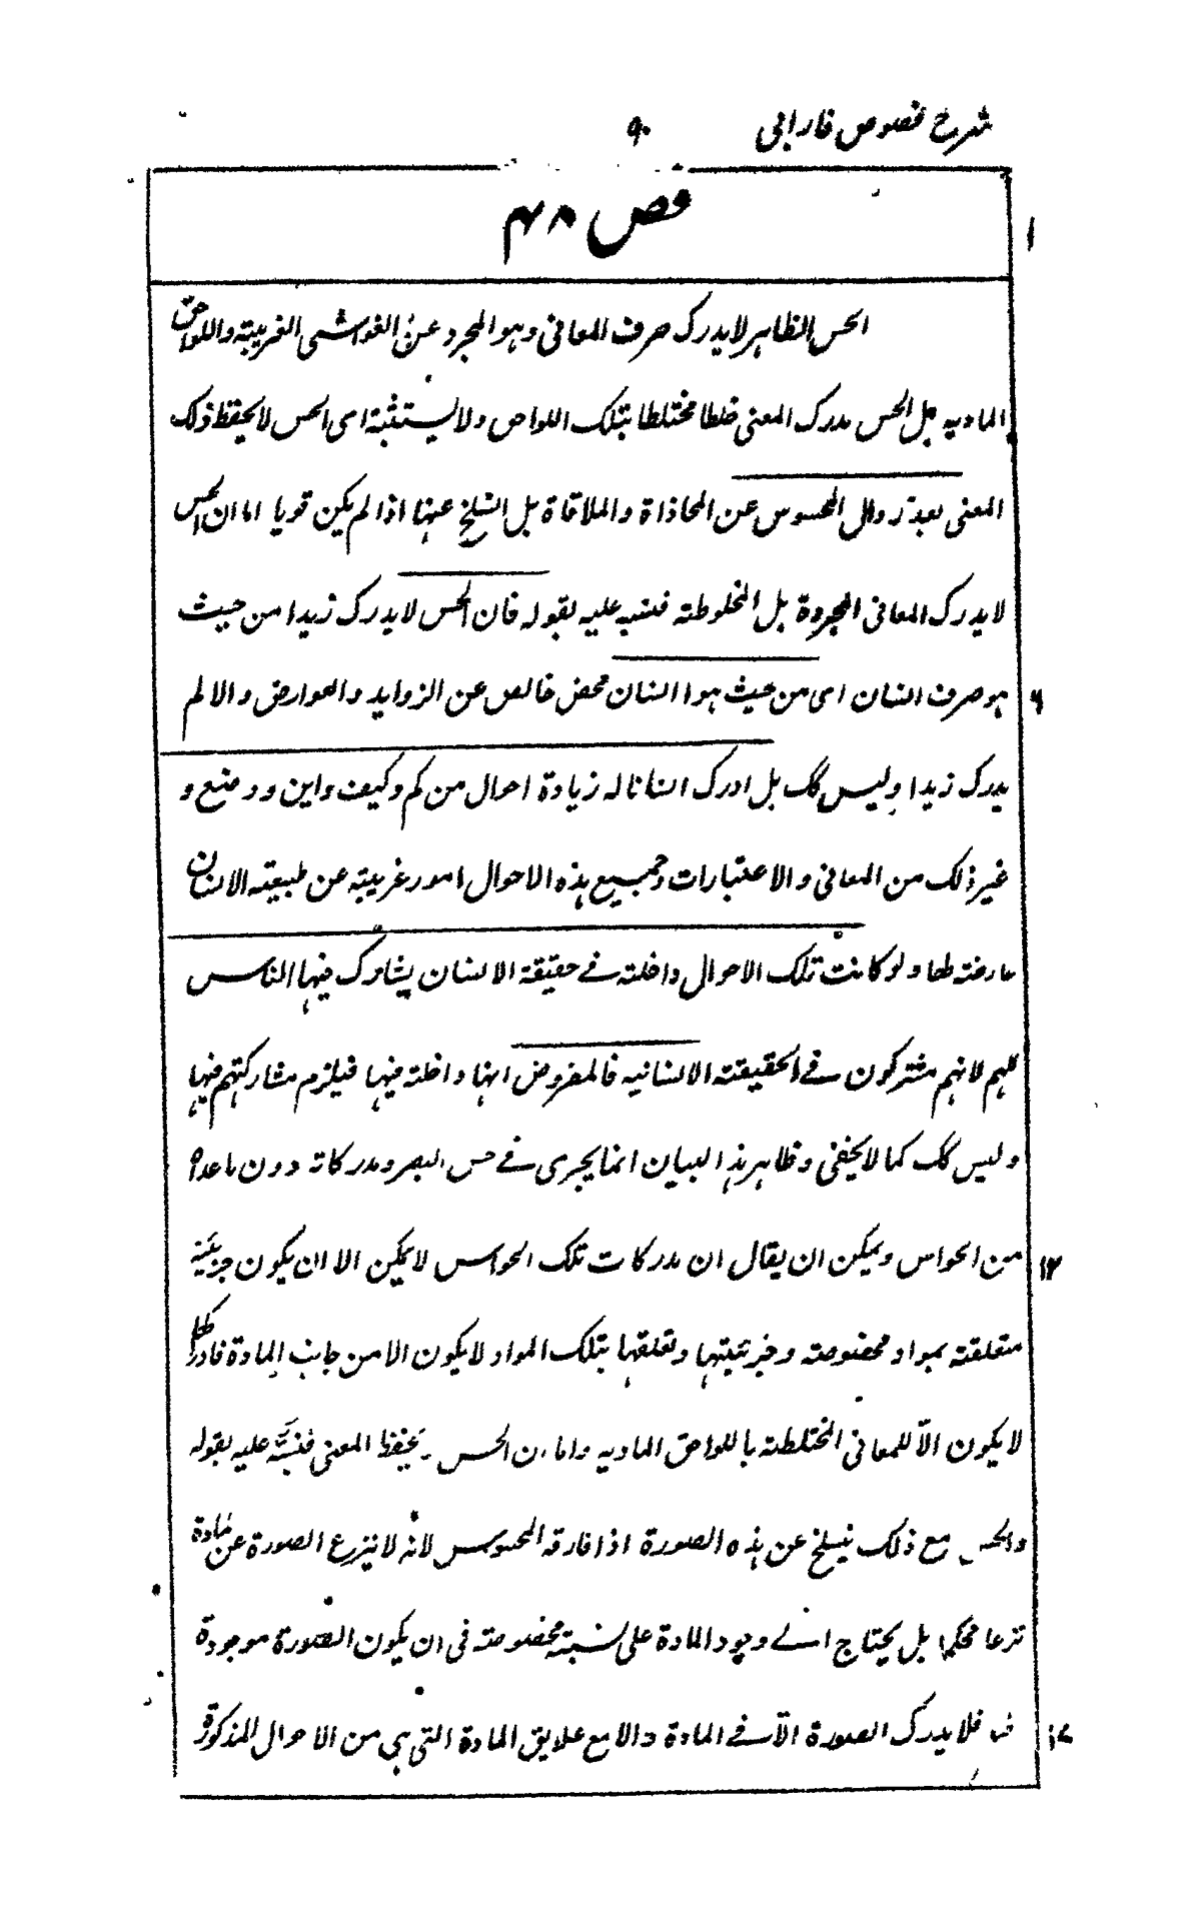 شرح فصوص فارابی
۹۰
فص ۴۸
۱
الحس الظاہر لا یدرک صرف المعانی وہو المجرد عن الغواشی الغریبۃ واللواحق
المادیہ بل الحس یدرک المعنی خلطا مختلطا بتلک اللواحق ولا یستثبتہ ای الحس لا یحفظ ذلک
المعنی بعد زوال المحسوس عن المحاذاۃ والملاقاۃ بل انسلخ عنہا اذا لم یکن قویا اما ان الحس
لا یدرک المعانی المجردۃ بل المخلوطۃ فنبہ علیہ بقولہ فان الحس لا یدرک زیدا من حیث
ہو صرف انسان ای من حیث ہو انسان محض خالص عن الزواید والعوارض والا لم ۶
یدرک زیدا ولیس کک بل ادرک انسانا لہ زیادۃ احوال من کم وکیف واین و وضع و
غیر ذلک من المعانی والاعتبارات وجمیع ہذہ الاحوال امور غریبۃ عن طبیعۃ الانسان
عارضۃ لھا ولو کانت تلک الاحوال داخلۃ فے حقیقۃ الانسان یشارک فیہا الناس
کلہم لانہم مشترکون فے الحقیقۃ الانسانیہ فالمفروض انہا داخلۃ فیہا فیلزم مشارکتہم فیہا
ولیس کک کما لا یخفی وظاہر ہذا البیان انما یجری فے حس البصر ومدرکاتہ دون ما عداہ
من الحواس ویمکن ان یقال ان مدرکات تلک الحواس لا یمکن الا ان یکون جزئیۃ ۱۲
متعلقۃ بمواد مخصوصۃ وجزئیتہا وتعلقہا بتلک المواد لا یکون الا من جانب المادۃ فادراکھا
لا یکون الّا للمعانی المختلطۃ باللواحق المادیہ واما ان الحس یحفظ المعنی فنبّہ علیہ بقولہ
والحس مع ذلک ینسلخ عن ہذہ الصورۃ اذا فارقہ المحسوس لانہ لا ینزع الصورۃ عن مادۃ
نزعا محکما بل یحتاج الے وجود المادۃ علی نسبۃ مخصوصۃ فی ان یکون الصورۃ موجودۃ
فلا یدرک الصورۃ الّا فے المادۃ والا مع علایق المادۃ التی ہی من الاحوال المذکورۃ ۱۷